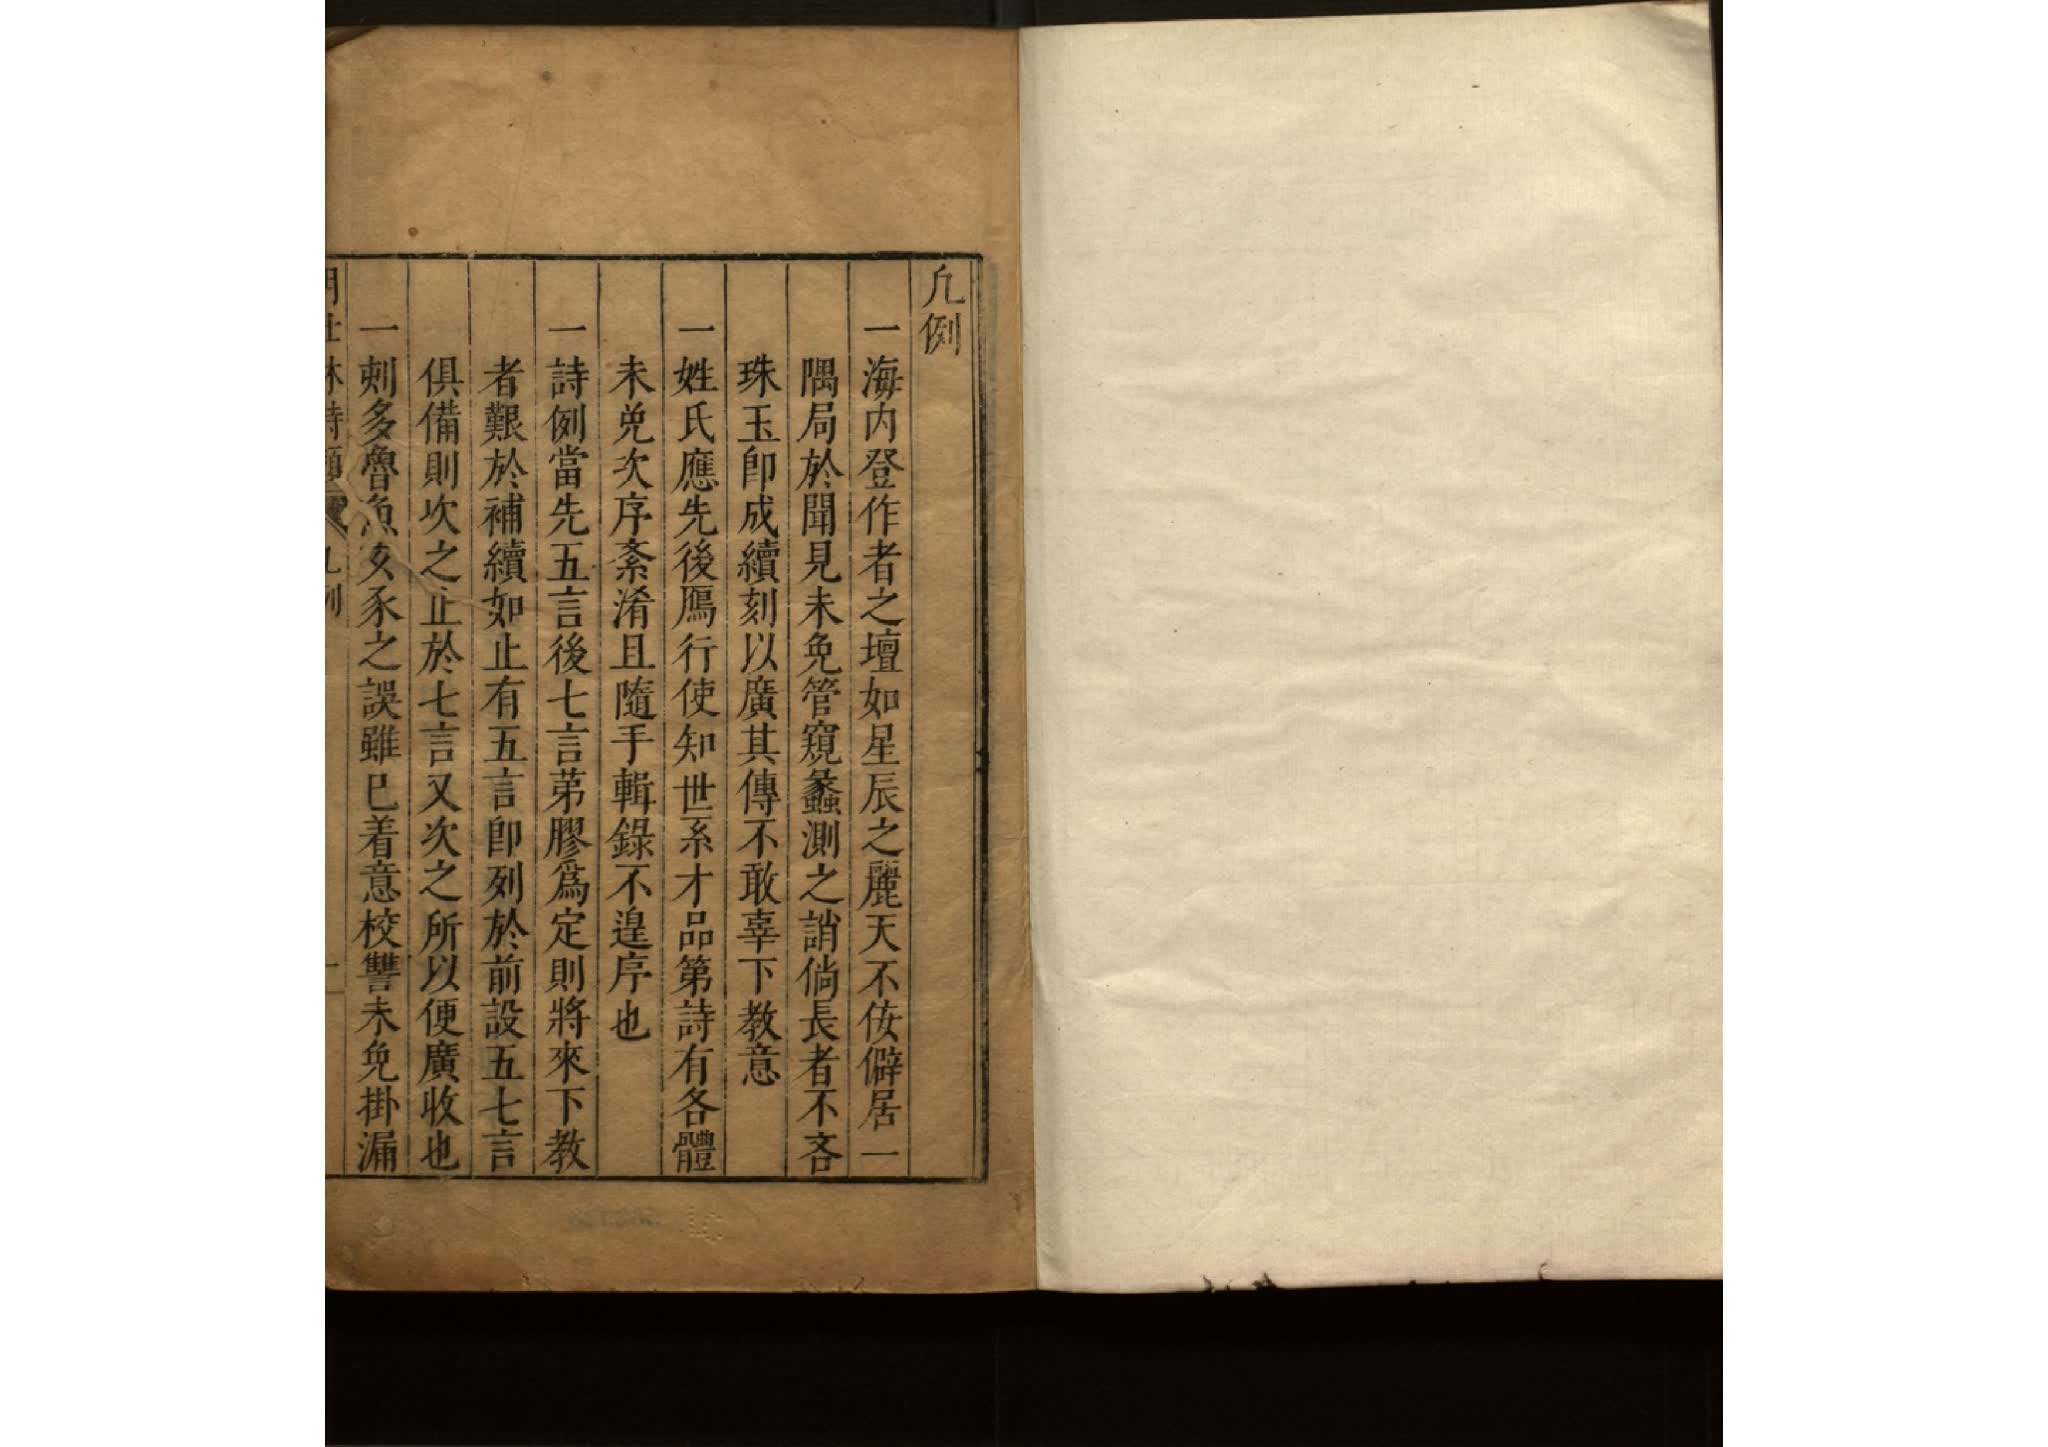 凡例
一海内登作者之壇如星辰之麗天不佞僻居一
隅局於聞見未免管窺蠡測之誚倘長者不吝
珠玉即成續刻以廣其傳不敢辜下教意
一姓氏應先後鴈行使知世系才品第詩有各體
未免次序紊淆且隨手輯錄不遑序也
一詩例當先五言後七言苐膠爲定則將來下教
者艱於補續如止有五言即列於前設五七言
俱備則次之止於七言又次之所以便廣收也
一刺多魯魚亥豕之誤雖已着意校讐未免掛漏